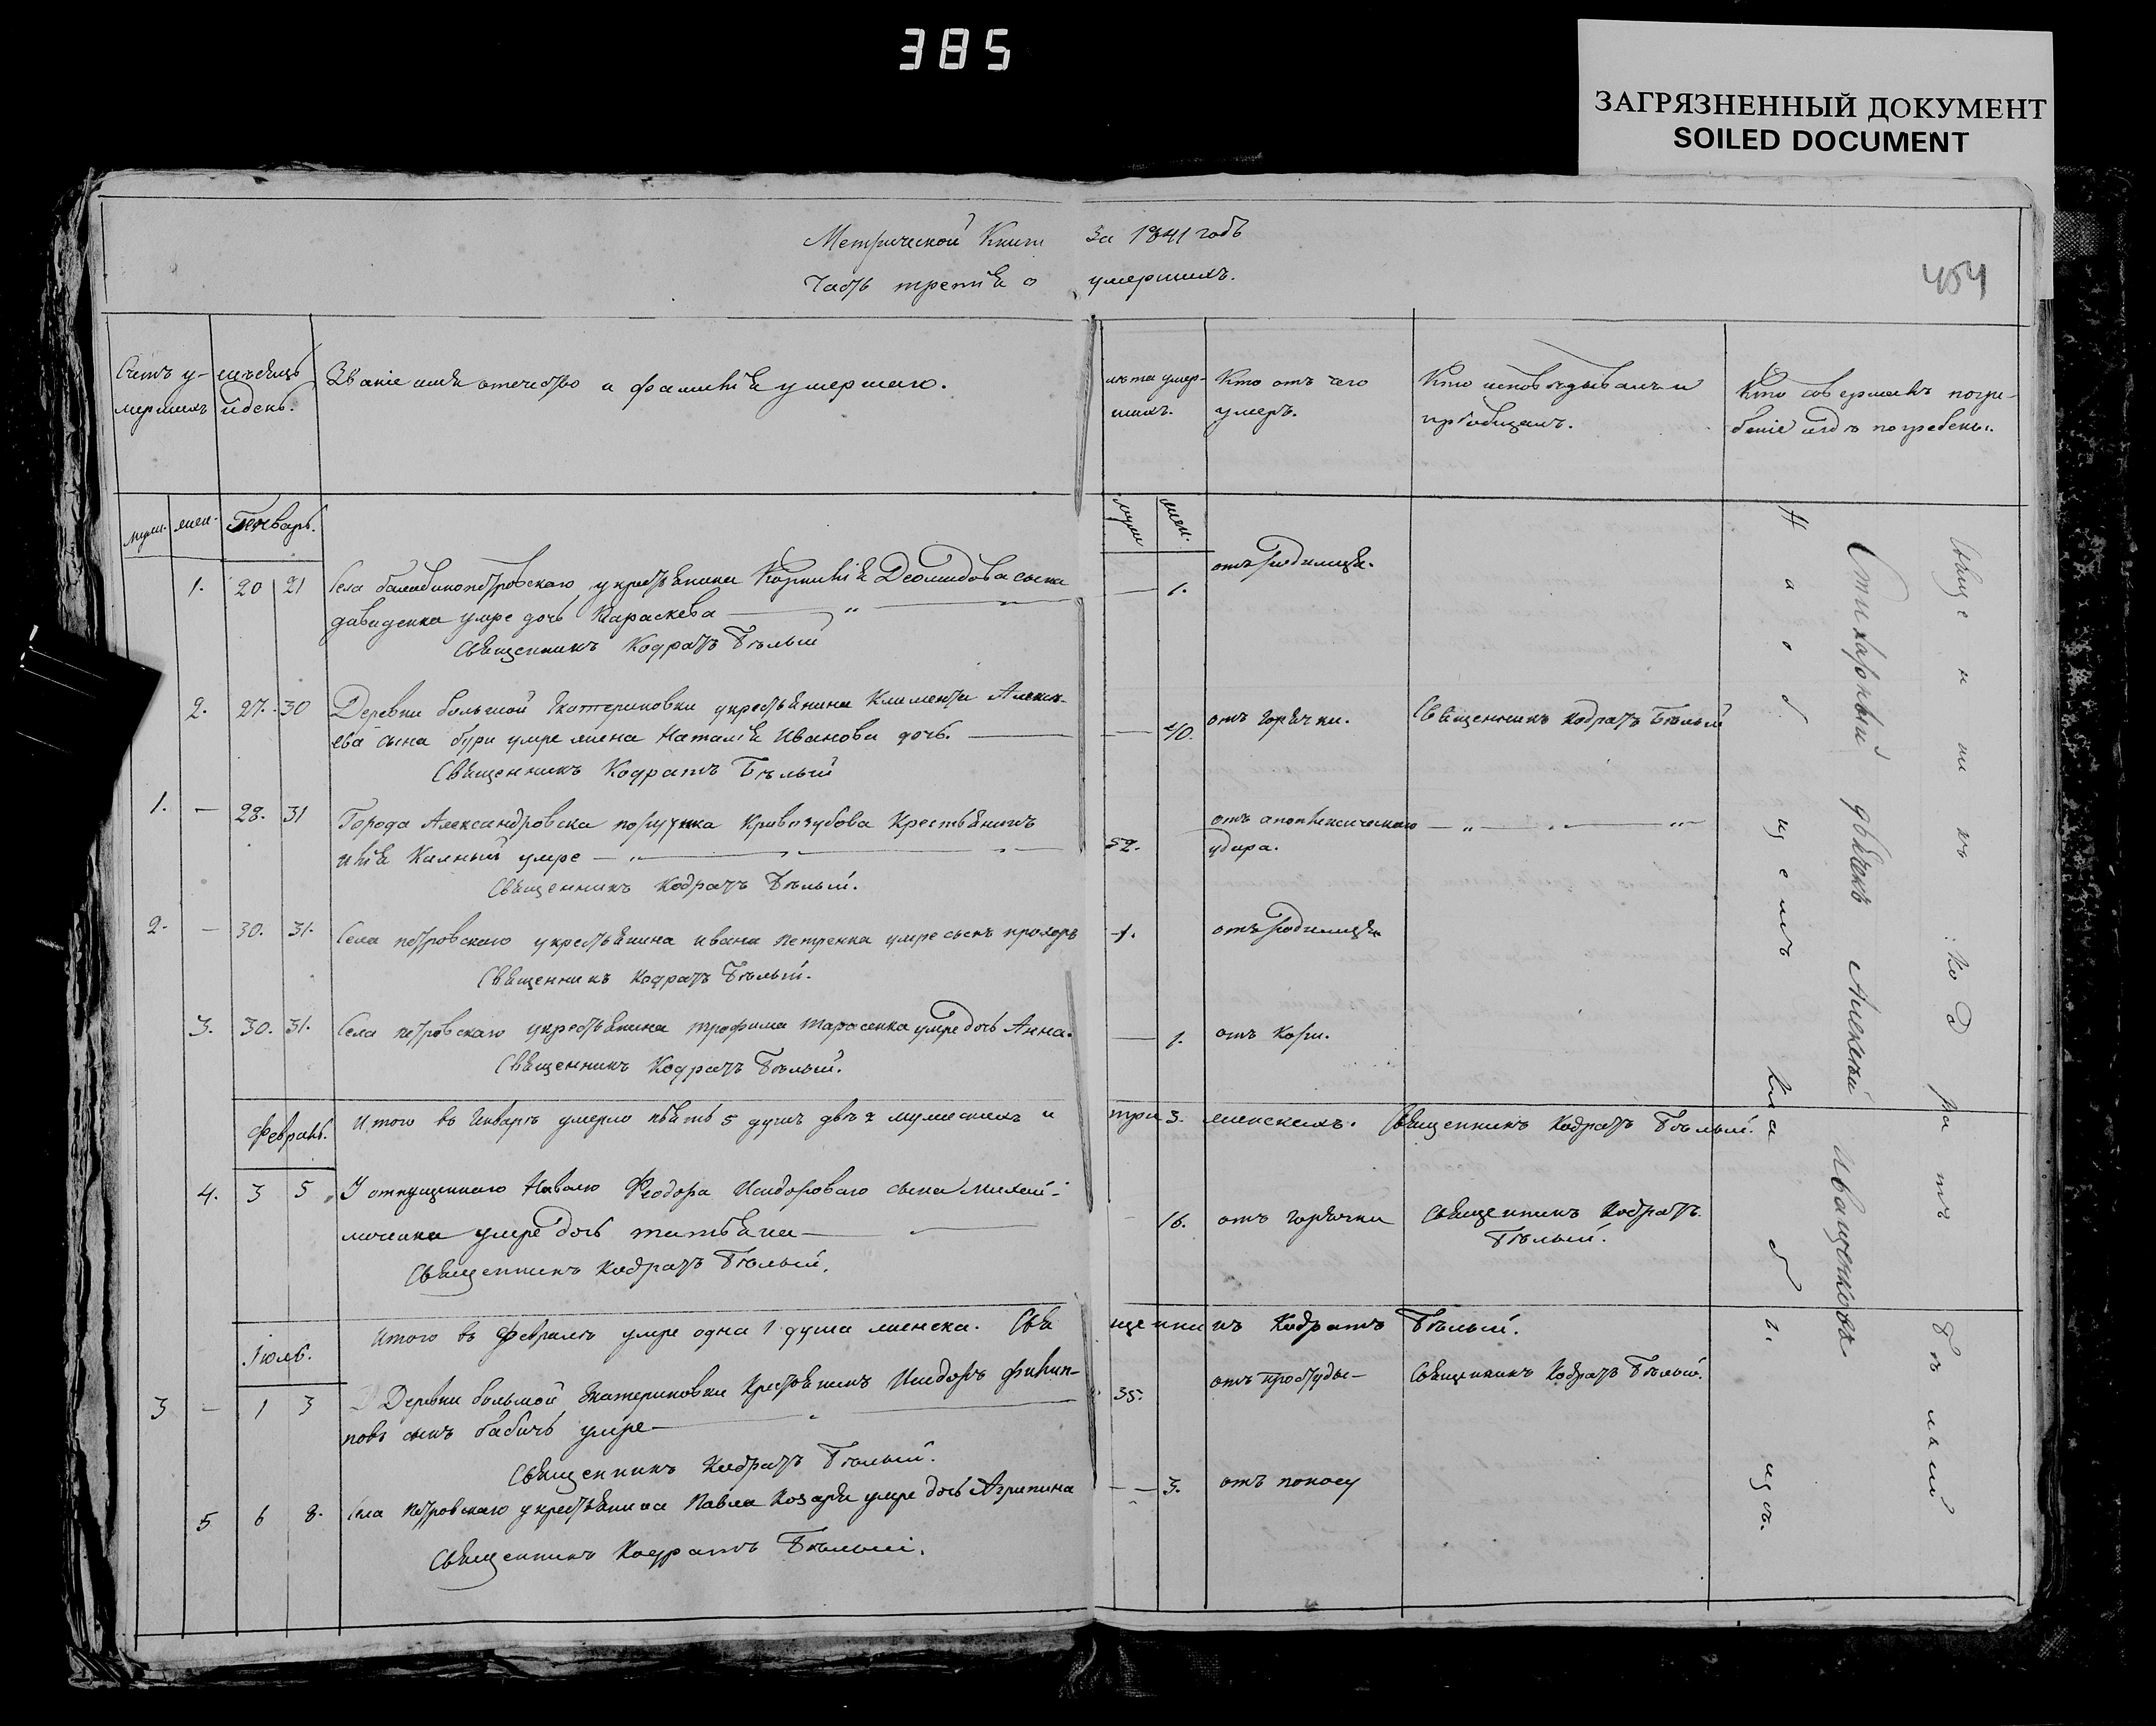 385
ЗАГРЯЗНЕННЫЙ ДОКУМЕНТ
SOILED DOCUMENT
454
Метрической Книги За 1841 годъ
Часть третія о умершихъ.
Счетъ у- мѣсяцъ Званіе имя отечество и фамилія умершаго. лѣта умер- Кто отъ чего Кто исповѣдывалъ и Кто совершалъ погре-
мершихъ и день. шихъ. умеръ. пріобщалъ. беніе и гдѣ погребены.
муж. жен. Генварь. муж. жен.
1. 20 21 Села балабинопетровскаго у крестьянина Корнилія Деомидова сына — 1. отъ родимца.
давиденка умре дочь Параскева
Священникъ Кодратъ Бѣлый
2. 27. 30 Деревни большой Екатериновки у крестьянина Климентія Алексѣ- — 40. отъ горячки. Священникъ Кодратъ Бѣлый
ева сына бури умре жена Наталія Иванова дочь.
Священникъ Кодратъ Бѣлый
1. — 28. 31 Города Александровска поручика Кривозубова Крестьянинъ 52. отъ апоплексическаго — „ — „ — „
илія умре — „ удара.
Священникъ Кодратъ Бѣлый.
2. — 30. 31. Села петровскаго у крестьянина ивана петренка умре сынъ прохоръ 1. отъ родимца
Священникъ Кодратъ Бѣлый.
3. 30. 31. Села петровскаго у крестьянина трофима тарасенка умре дочь Анна. — 1. отъ кори.
Священникъ Кодратъ Бѣлый.
Февраль. Итого въ Январѣ умерло пять 5 душъ двѣ 2 мужескихъ и три 3. женскихъ. Священникъ Кодратъ Бѣлый.
4. 3 5 У отпущеннаго на волю Феодора Исидороваго сына 16. отъ горячки Священникъ Кодратъ
умре дочь татьяна Бѣлый.
Священникъ Кодратъ Бѣлый.
Итого въ Февралѣ умре одна 1 душа женска. Священникъ Кодратъ Бѣлый.
Іюль.
3 — 1 3 Деревни большой Екатериновки Крестьянинъ Исидоръ филип- 35. отъ простуды — Священникъ Кодратъ Бѣлый.
повъ сынъ бабичь умре —
Священникъ Кодратъ Бѣлый.
5 6 8. Села Петровскаго у крестьянина Павла Козаря умре дочь Агрипина — 3. отъ поносу
Священникъ Кодратъ Бѣлый.
Священникъ Кодратъ Бѣлый
Стихарный дьячекъ Алексѣй Иващенковъ
На общемъ Кладби